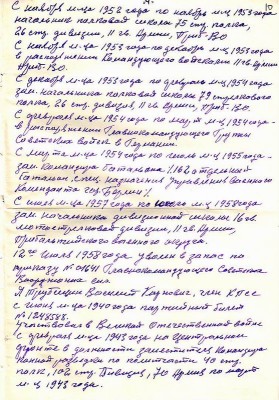 С ноября м-ца 1952 года по ноябрь м-ц 1953 года
начальник полковой школы 75 стр. полка,
26 стр. дивизии, 11 гв. Армии, Приб-ВО.
С ноября м-ца 1953 года по декабрь м-ц 1953 года
в распоряжении Командующего войсками 11 гв. Армии
Приб-ВО.
С декабря м-ца 1953 года по февраль м-ц 1954 года
зам. начальника полковой школы стрелкового
полка, 26 стр. дивизии, 11 гв. Армии, Приб-ВО.
С февраля м-ца 1954 года по март м-ц 1954 года
в распоряжении Главнокомандующего Группы
Советских войск в Германии.
С марта м-ца 1954 года по м-ц 1955 года
зам. Командира Батальона /162 отдельный
батальон спец. назначения Управления военного
Коменданта гор. Берлин/.
С июля м-ца 1957 года по м-ц 1958 года
зам. начальника дивизионной школы 16 гв.
мотострелковой дивизии, 11 гв. Армии,
Прибалтийского военного округа.
12го июля 1958 года, уволен в запас по
приказу № 01641 Главнокомандующего Советских
Вооруженных сил
Я Василий Карпович, член КПСС
с июня м-ца 1940 года партийный билет
№
Участвовал в Великой Отечественной войне
с февраля м-ца 1943 года на Центральном
фронте в должности заместителя Командира
конной разведки по политчасти 40 стр.
полк, 102 стр. Дивизия, 70 Армия по март
м-ц 1943 года.